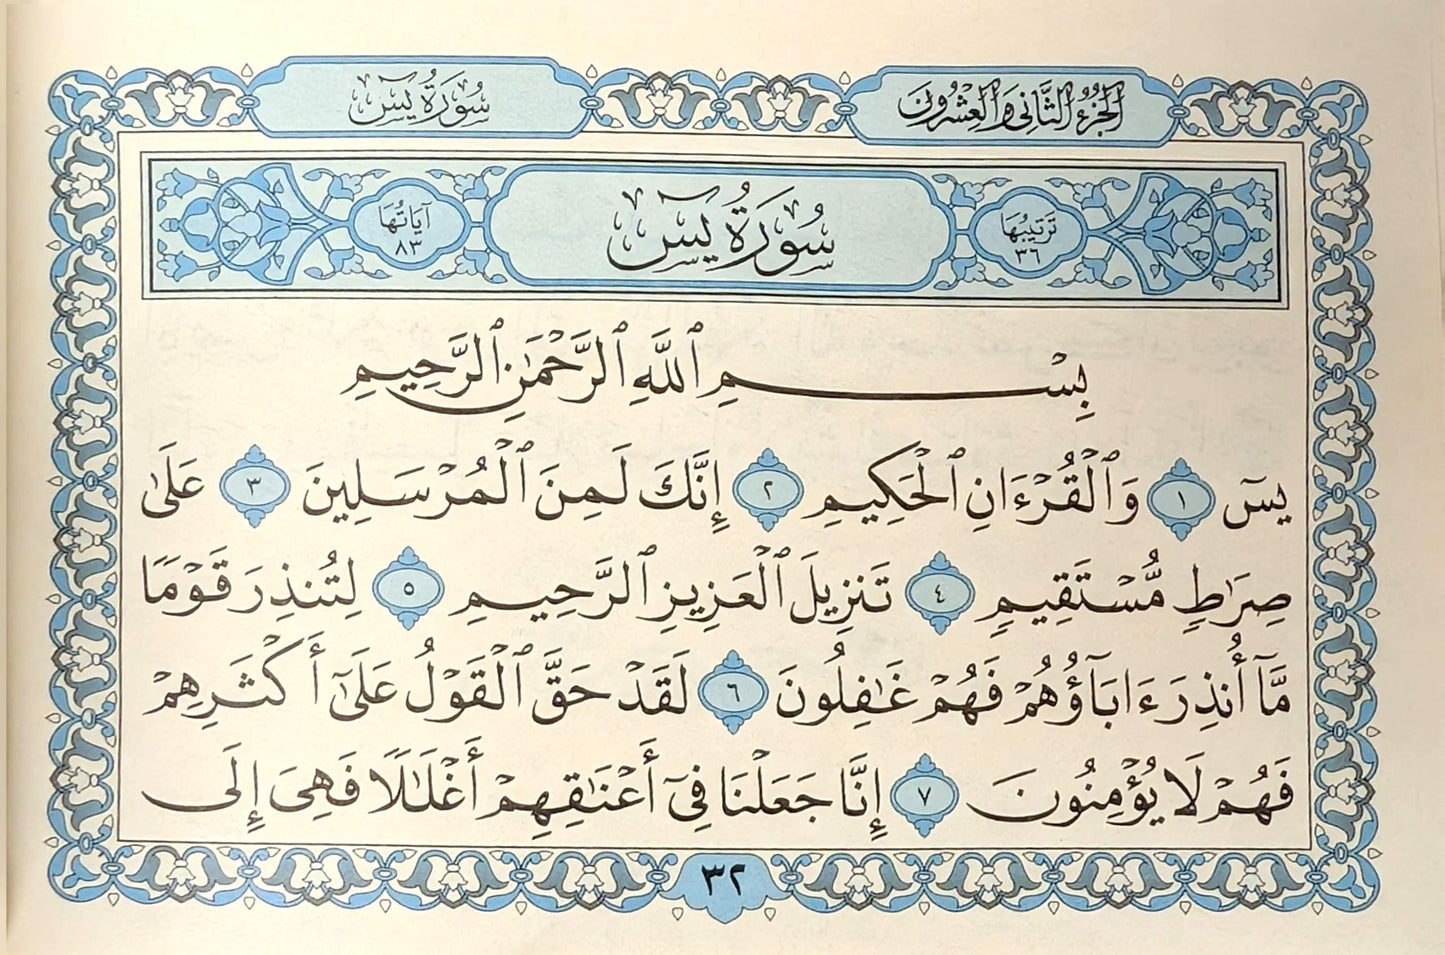 الجزء الثاني والعشرون
سُورَةُ يسٓ
تَرتيبُهَا
٣٦
سُورَةُ يسٓ
آيَاتُهَا
٨٣
بِسْمِ ٱللَّهِ ٱلرَّحْمَٰنِ ٱلرَّحِيمِ
يسٓ ١ وَٱلْقُرْءَانِ ٱلْحَكِيمِ ٢ إِنَّكَ لَمِنَ ٱلْمُرْسَلِينَ ٣ عَلَىٰ
صِرَٰطٍ مُّسْتَقِيمٍ ٤ تَنزِيلَ ٱلْعَزِيزِ ٱلرَّحِيمِ ٥ لِتُنذِرَ قَوْمًا
مَّآ أُنذِرَ ءَابَآؤُهُمْ فَهُمْ غَٰفِلُونَ ٦ لَقَدْ حَقَّ ٱلْقَوْلُ عَلَىٰٓ أَكْثَرِهِمْ
فَهُمْ لَا يُؤْمِنُونَ ٧ إِنَّا جَعَلْنَا فِىٓ أَعْنَٰقِهِمْ أَغْلَٰلًا فَهِىَ إِلَى
٣٢